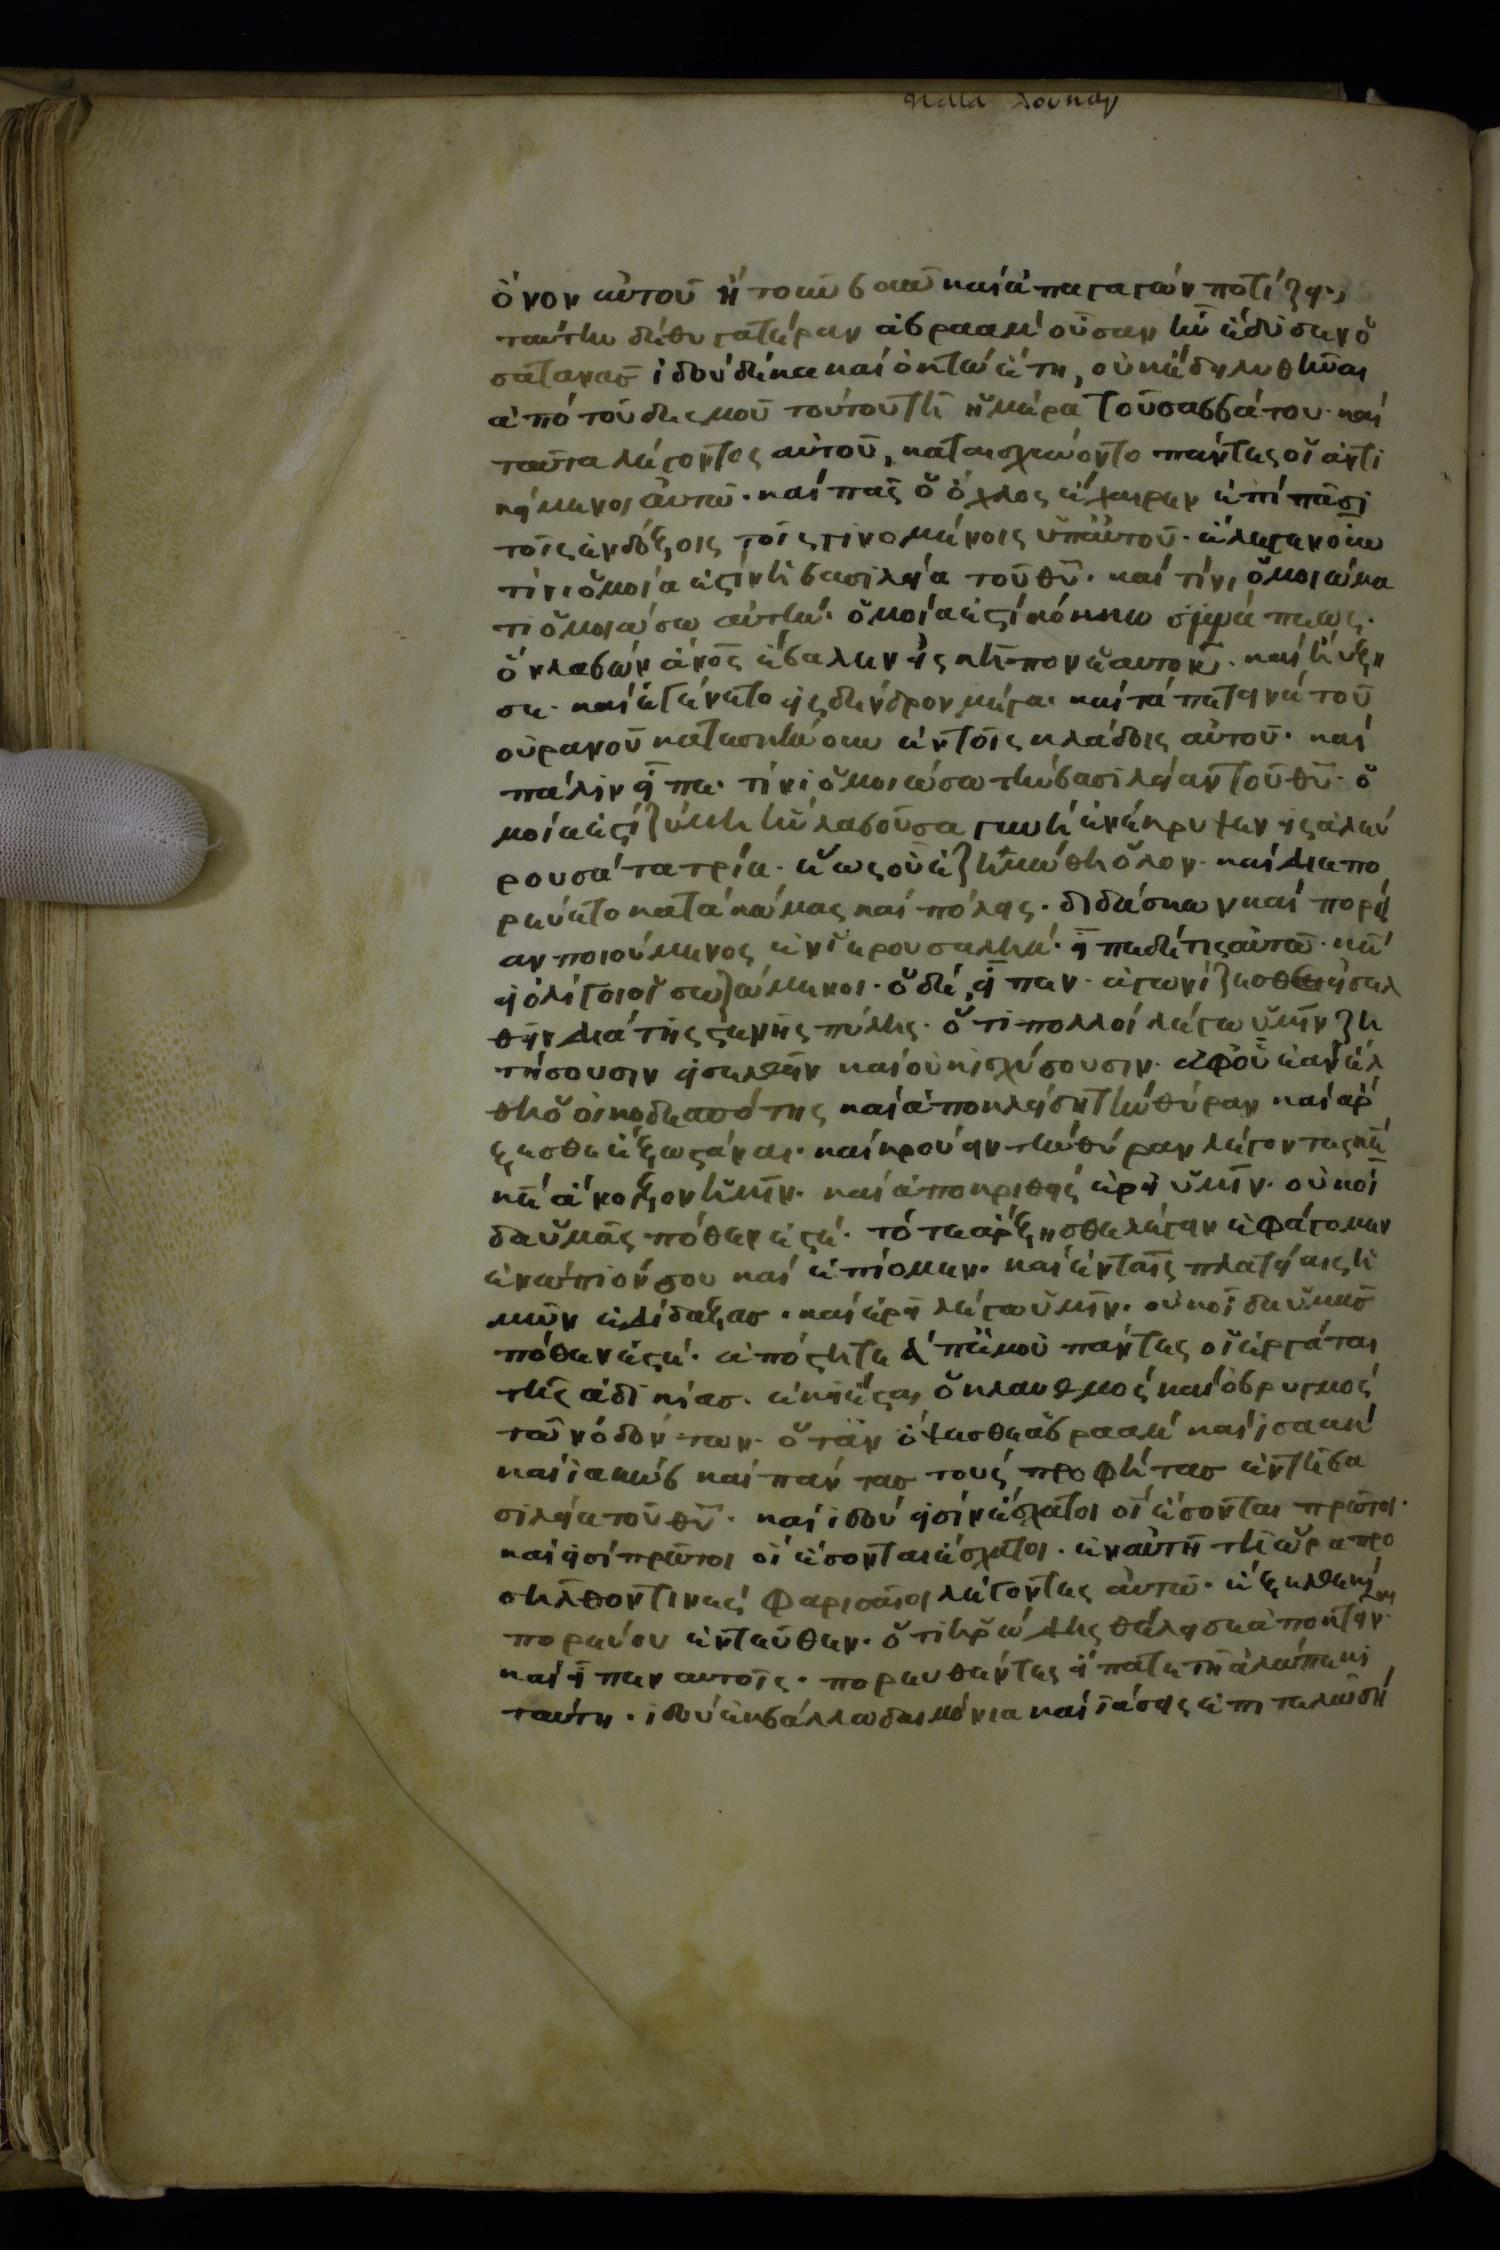 κατα λουκαν
ὄνον αὐτοῦ ἢ τὸν βοῦν καὶ ἀπαγαγών ποτίζει·
ταύτην δὲ θυγατέραν ἀβραὰμ οὖσαν ἣν ἔδησεν ὁ
σατανᾶσ ἰδοὺ δέκα καὶ ὀκτὼ ἔτη, οὐκ ἔδει λυθῆναι
ἀπὸ τοῦ δεσμοῦ τούτου τῇ ἡμέρα τοῦ σαββάτου· καὶ
ταῦτα λέγοντος αὐτοῦ, κατῃσχύνοντο πάντες οἱ ἀντι
κείμενοι αὐτῶ· καὶ πᾶς ὁ ὄχλος ἔχαιρεν ἐπὶ πᾶσι
τοῖς ἐνδόξοις τοῖς γινομένοις ὑπ αὐτοῦ· ἔλεγεν οὖν
τίνι ὁμοία ἐστὶν ἡ βασιλεία τοῦ θῦ· καὶ τίνι ὁμοιώμα
τι ὁμοιώσω αὐτήν· ὁμοία ἐστὶ κόκκω σινάπεως·
ὃν λαβὼν ἄνος ἔβαλεν εἰς κῆπον ἑαυτοῦ· καὶ ηὔξη
σε· καὶ ἐγένετο εἰς δένδρον μέγα· καὶ τὰ πετεινὰ τοῦ
οὐρανοῦ κατασκήνουν ἐν τοῖς κλάδοις αὐτοῦ· καὶ
πάλιν εἶπε· τίνι ὁμοιώσω τὴν βασιλείαν τοῦ θῦ· ὁ
μοία ἐστὶ ζύμη ἣν λαβοῦσα γυνὴ ἐνέκρυψεν εἰς ἀλεύ
ρου σάτα τρία· ἕως οὗ ἐζημώθη ὅλον· καὶ διεπο
ρεύετο κατὰ κώμας καὶ πόλεις· διδάσκων καὶ πορεί
αν ποιούμενος ἐν ἱερουσαλήμ· εἶπε δέ τις αὐτῶ· κε
εἰ ὀλίγοι οἱ σωζώμενοι· ὁ δὲ εἶπεν· ἀγωνίζεσθε εἰσελ
θεῖν διὰ τῆς στενῆς πύλης· ὅτι πολλοὶ λέγω ὑμῖν ζη
τήσουσιν εἰσελθεῖν καὶ οὐκ ἰσχύσουσιν· ἀφοῦ ἐὰν ἔλ
θη ὁ οἰκοδεσπότης καὶ ἀποκλείση τὴν θύραν καὶ ἄρ
ξησθε ἔξω στάναι· καὶ κρούειν τὴν θύραν λέγοντες κε
κε ἄνοιξον ἡμῖν· καὶ ἀποκριθεὶς ἐρεῖ ὑμῖν· οὐκ οἶ
δα ὑμᾶς πόθεν ἐστέ· τότε ἄρξησθε λέγειν ἐφάγομεν
ἐνώπιόν σου καὶ ἐπίομεν· καὶ ἐν ταῖς πλατείαις ἡ
μῶν ἐδίδαξας· καὶ ἐρεῖ λέγω ὑμῖν· οὐκ οἶδα ὑμᾶσ
πόθεν ἐστέ· ἀπόστητε ἀπ ἐμοῦ πάντες οἱ ἐργάται
τῆς ἀδικίασ· ἐκεῖ ἔσται ὁ κλαυθμὸς καὶ ὁ βρυγμὸς
τῶν ὀδόντων· ὅταν ὄψεσθε ἀβραὰμ καὶ ἰσαὰκ
καὶ ἰακὼβ καὶ πάντασ τοὺς προφήτασ ἐν τῆ βα
σιλεία τοῦ θῦ· καὶ ἰδοὺ εἰσὶν ἔσχατοι οἳ ἔσονται πρῶτοι·
καὶ εἰσὶ πρῶτοι οἳ ἔσονται ἔσχατοι· ἐν αὐτῆ τῆ ὥρα προ
σῆλθόν τινες φαρισαῖοι λέγοντες αὐτῶ· ἔξελθε καὶ
πορεύου ἐντεῦθεν· ὅτι ἡρώδης θέλει σε ἀποκτεῖναι·
καὶ εἶπεν αὐτοῖς· πορευθέντες εἴπατε τῆ ἀλώπεκι
ταύτη· ἰδοὺ ἐκβάλλω δαιμόνια καὶ ἰάσεις ἐπιτελῶ σή